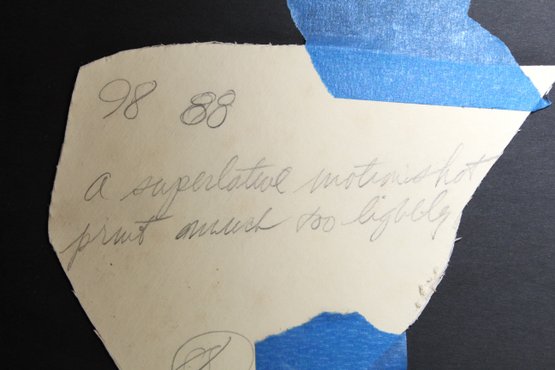 98 88
a superlative motion shot
print much too lightly